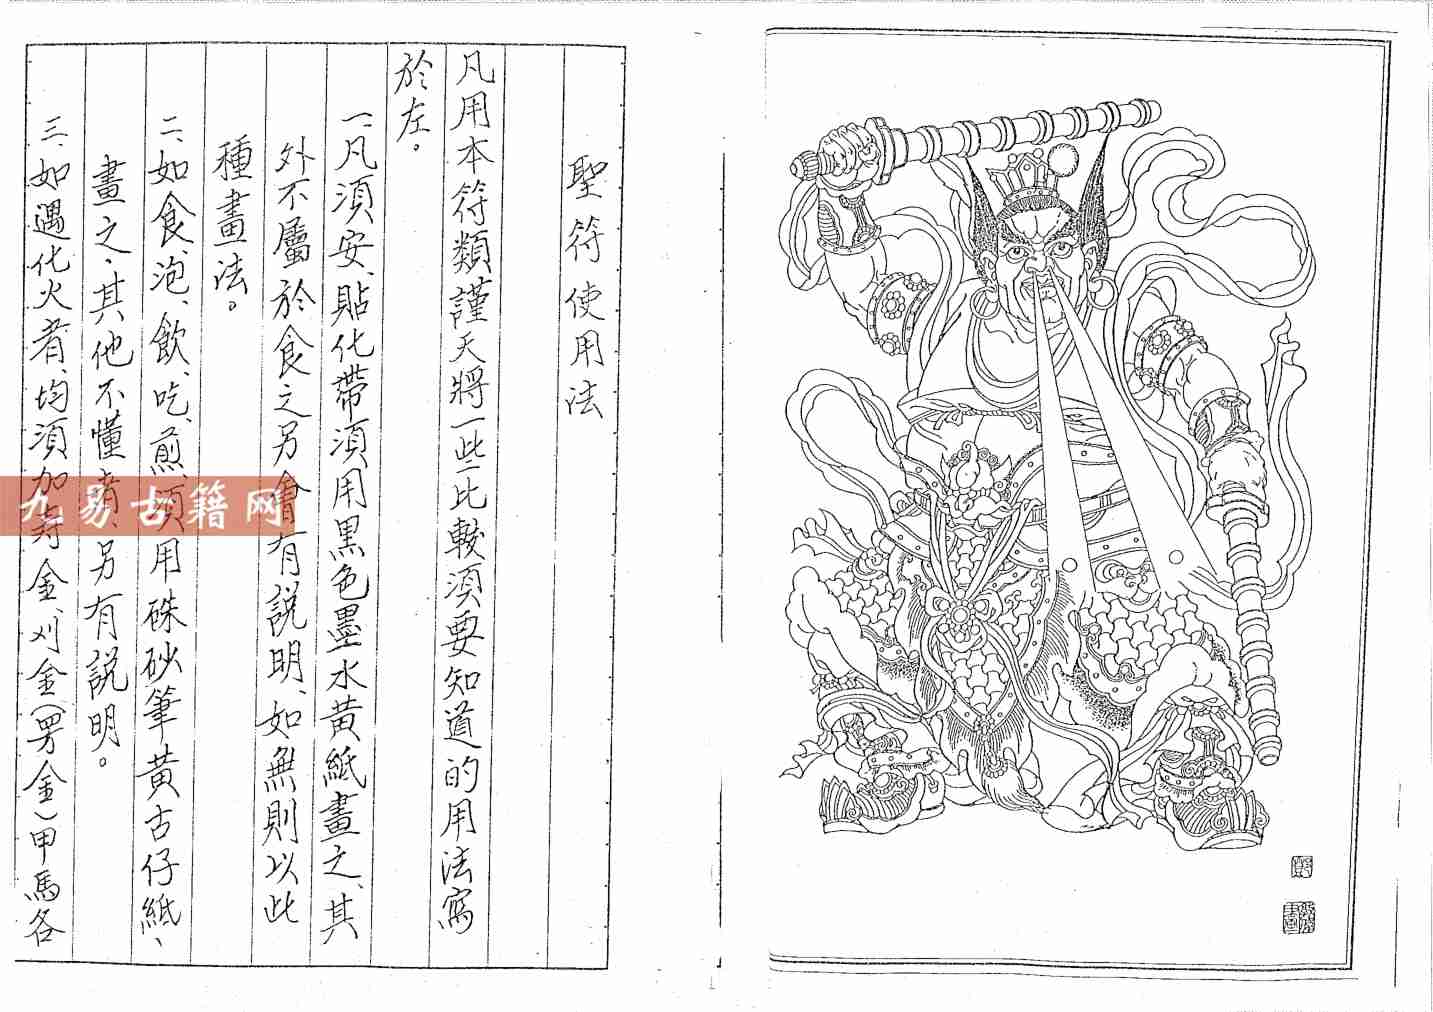 聖符使用法
凡用本符類謹天將一些比較須要知道的用法寫
於左。
一、凡須安、貼化帶須用黑色墨水黃紙畫之、其
外不屬於食之另會有説明、如無則以此
種畫法。
二、如食、泡、飲、吃、煎、須用硃砂筆黃古仔紙、
畫之、其他不懂者、另有説明。
三、如遇化火者、均須加壽金、刈金(男金)甲馬各
九易古籍网